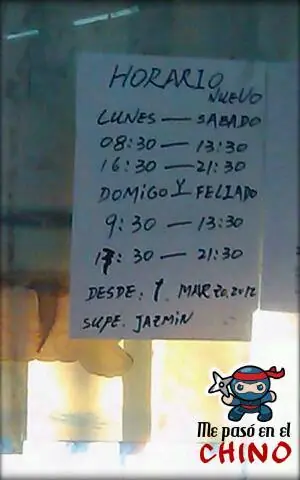 HORARIO
NUEVO
LUNES — SABADO
08:30 — 13:30
16:30 — 21:30
DOMIGO Y FELIADO
9:30 — 13:30
17:30 — 21:30
DESDE: 1. MARZO.2012
SUPE. JAZMIN
Me pasó en el
CHINO